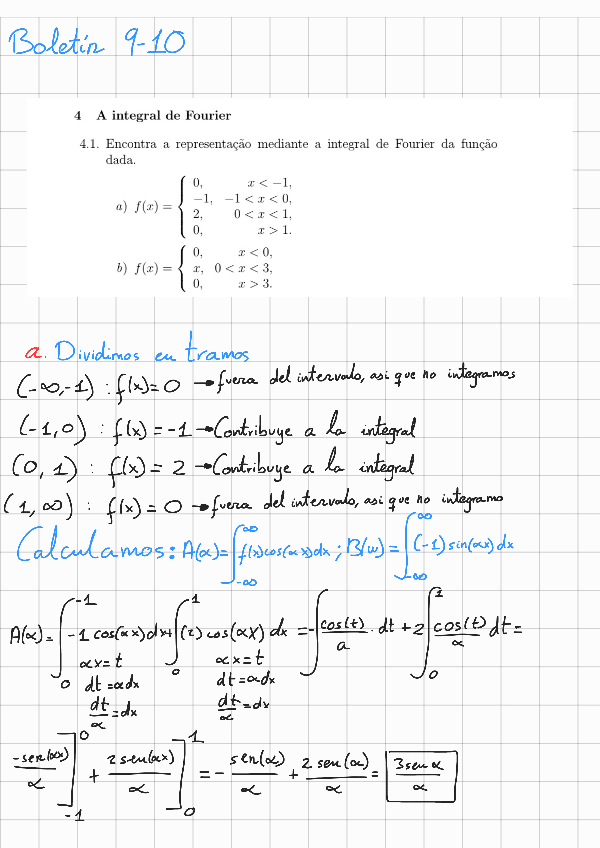 Boletín 9-10
4 A integral de Fourier
4.1. Encontra a representação mediante a integral de Fourier da função
dada.
a) f(x) = { 0, x < −1,
−1, −1 < x < 0,
2, 0 < x < 1,
0, x > 1.
b) f(x) = { 0, x < 0,
x, 0 < x < 3,
0, x > 3.
a. Dividimos en tramos
(-∞,-1) : f(x)=0 → fuera del intervalo, asi que no integramos
(-1,0) : f(x) = -1 → Contribuye a la integral
(0, 1) : f(x) = 2 → Contribuye a la integral
(1, ∞) : f(x) = 0 → fuera del intervalo, asi que no integramo
Calculamos: A(α)=∫_{-∞}^{∞} f(x)cos(αx)dx ; B(w) = ∫_{-∞}^{∞} (-1) sin(αx) dx
A(α)=∫_{0}^{-1} -1 cos(αx) dx + ∫_{0}^{1} (2) cos(αx) dx = -∫ cos(t)/a · dt + 2∫_{0}^{1} cos(t)/α dt =
αx=t αx=t
dt=αdx dt=αdx
dt/α=dx dt/α=dx
-sen(αx)/α ]_{-1}^{0} + 2sen(αx)/α ]_{0}^{1} = - sen(α)/α + 2 sen(α)/α = 3sen α/α